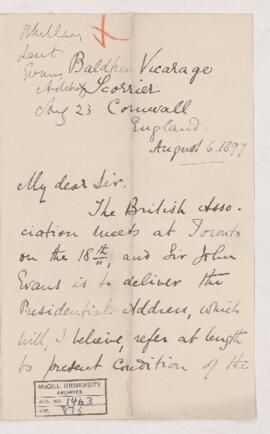 Sent
Evans
Baldhu Vicarage
Scorrier
Aug 23 Cornwall
England.
August 6. 1897
My dear Sir.
The British Asso-
ciation meets at Toronto
on the 18th, and Sir John
Evans is to deliver the
Presidential Address, which
will, I believe, refer at length
to present condition of the
McGILL UNIVERSITY
ARCHIVES
ACC. NO. 1463
REF.